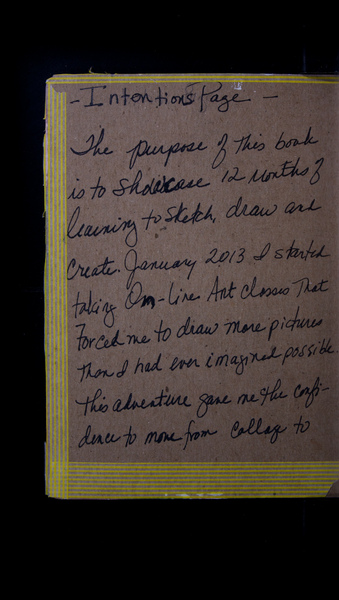 - Intentions Page -
The purpose of this book
is to Showcase 12 months of
learning to sketch, draw and
create. January 2013 I started
taking On-Line Art Classes That
Forced me to draw more pictures
Than I had ever imagined possible.
This adventure gave me the confi-
dence to move from Collage to